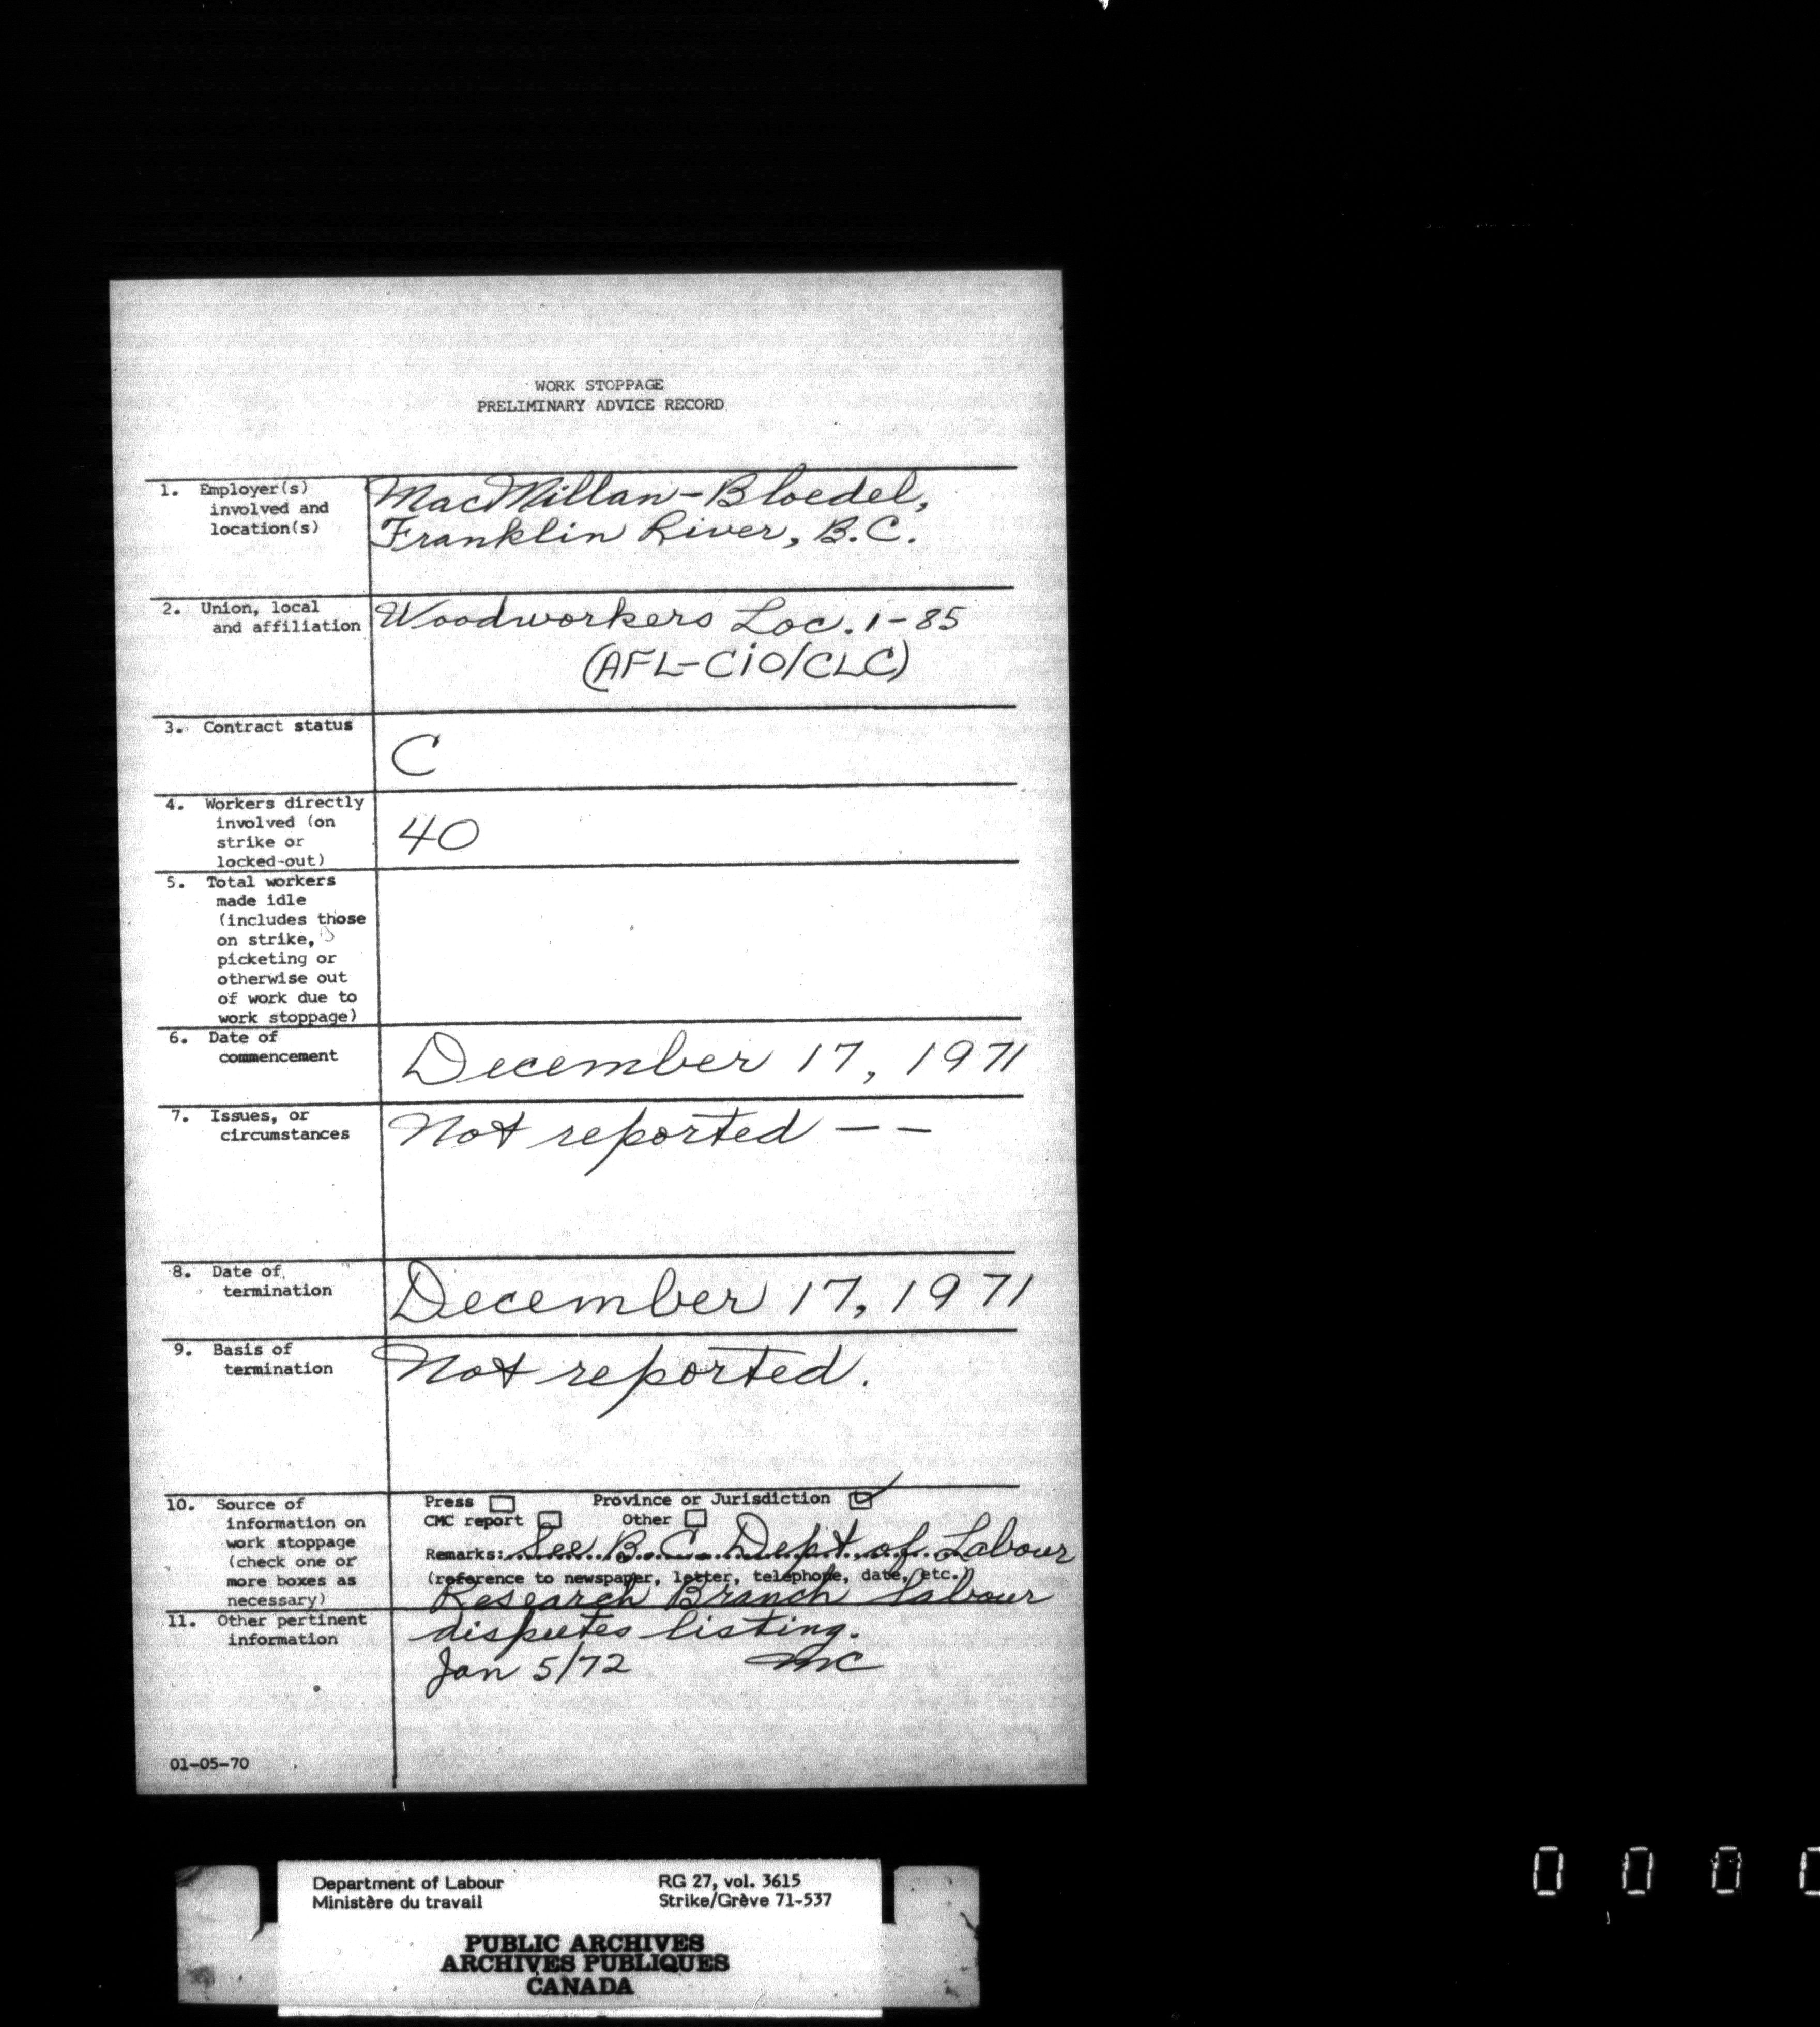 WORK STOPPAGE
PRELIMINARY ADVICE RECORD
1. Employer(s)
involved and
location(s)
MacMillan-Bloedel,
Franklin River, B.C.
2. Union, local
and affiliation
Woodworkers Loc. 1-85
(AFL-CiO/CLC)
3. Contract status
C
4. Workers directly
involved (on
strike or
locked-out)
40
5. Total workers
made idle
(includes those
on strike,
picketing or
otherwise out
of work due to
work stoppage)
6. Date of
commencement
December 17, 1971
7. Issues, or
circumstances
Not reported - -
8. Date of
termination
December 17, 1971
9. Basis of
termination
Not reported.
10. Source of
information on
work stoppage
(check one or
more boxes as
necessary)
Press Province or Jurisdiction
CMC report Other
Remarks: See B.C. Dept. of Labour
(reference to newspaper, letter, telephone, date, etc.)
Research Branch Labour
11. Other pertinent
information
disputes listing.
Jan 5/72 MC
01-05-70
Department of Labour RG 27, vol. 3615
Ministère du travail Strike/Grève 71-537
PUBLIC ARCHIVES
ARCHIVES PUBLIQUES
CANADA
0 0 0